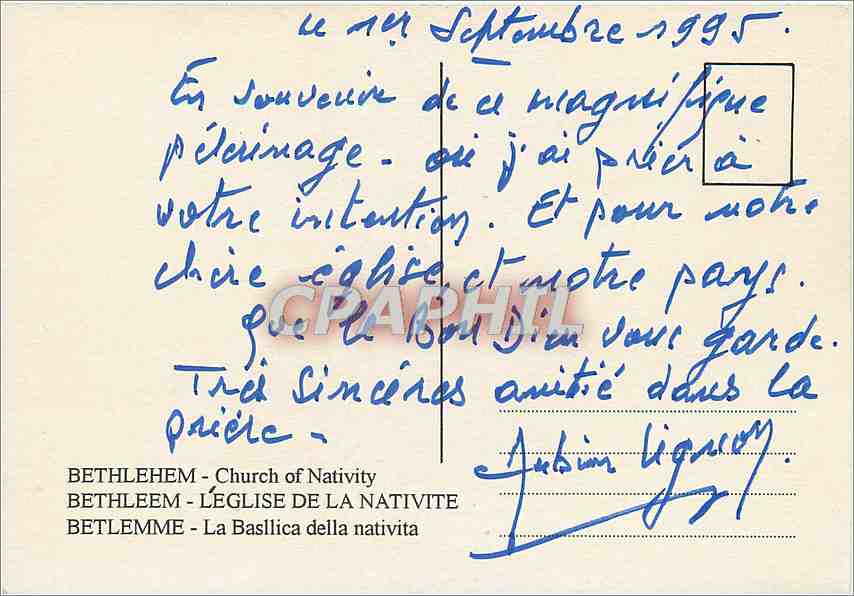 le 1er Septembre 1995.
En souvenir de ce magnifique
pélerinage - où j'ai prier à
votre intention. Et pour notre
chère église, et notre pays.
Que le Bon Dieu vous garde.
Très Sincères amitié dans la
prière -
CPAPHIL
BETHLEHEM - Church of Nativity
BETHLEEM - L'ÉGLISE DE LA NATIVITE
BETLEMME - La Basllica della nativita